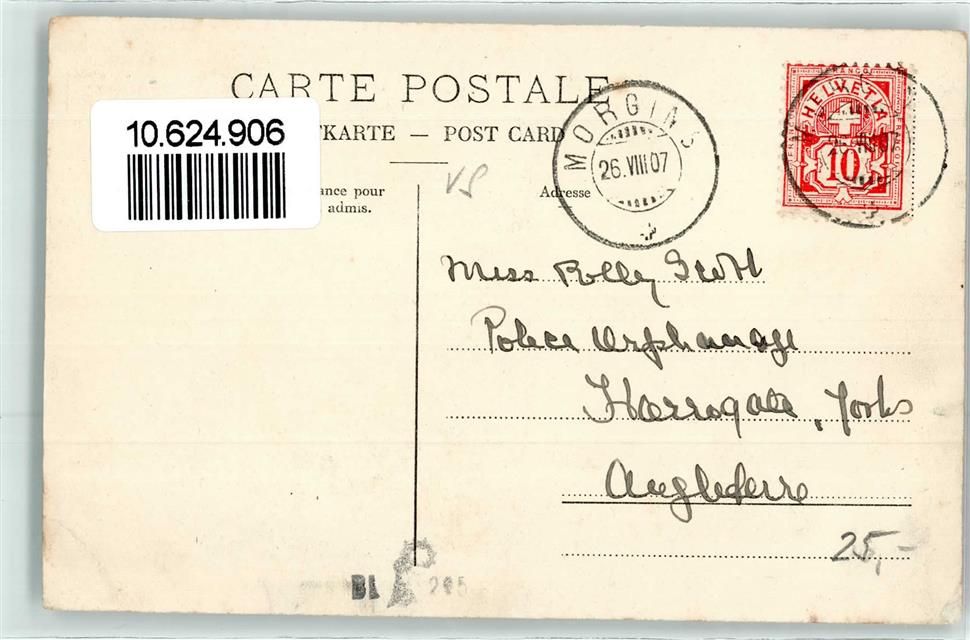 CARTE POSTALE
10.624.906
TKARTE — POST CARD
ance pour
admis.
VS
Adresse
MORGINS
26.VIII.07
FRANCO
HELVETIA
10
Miss Polly Scott
Police Orphanage
Harrogate, Yorks
Angleterre
25,-
BL 295